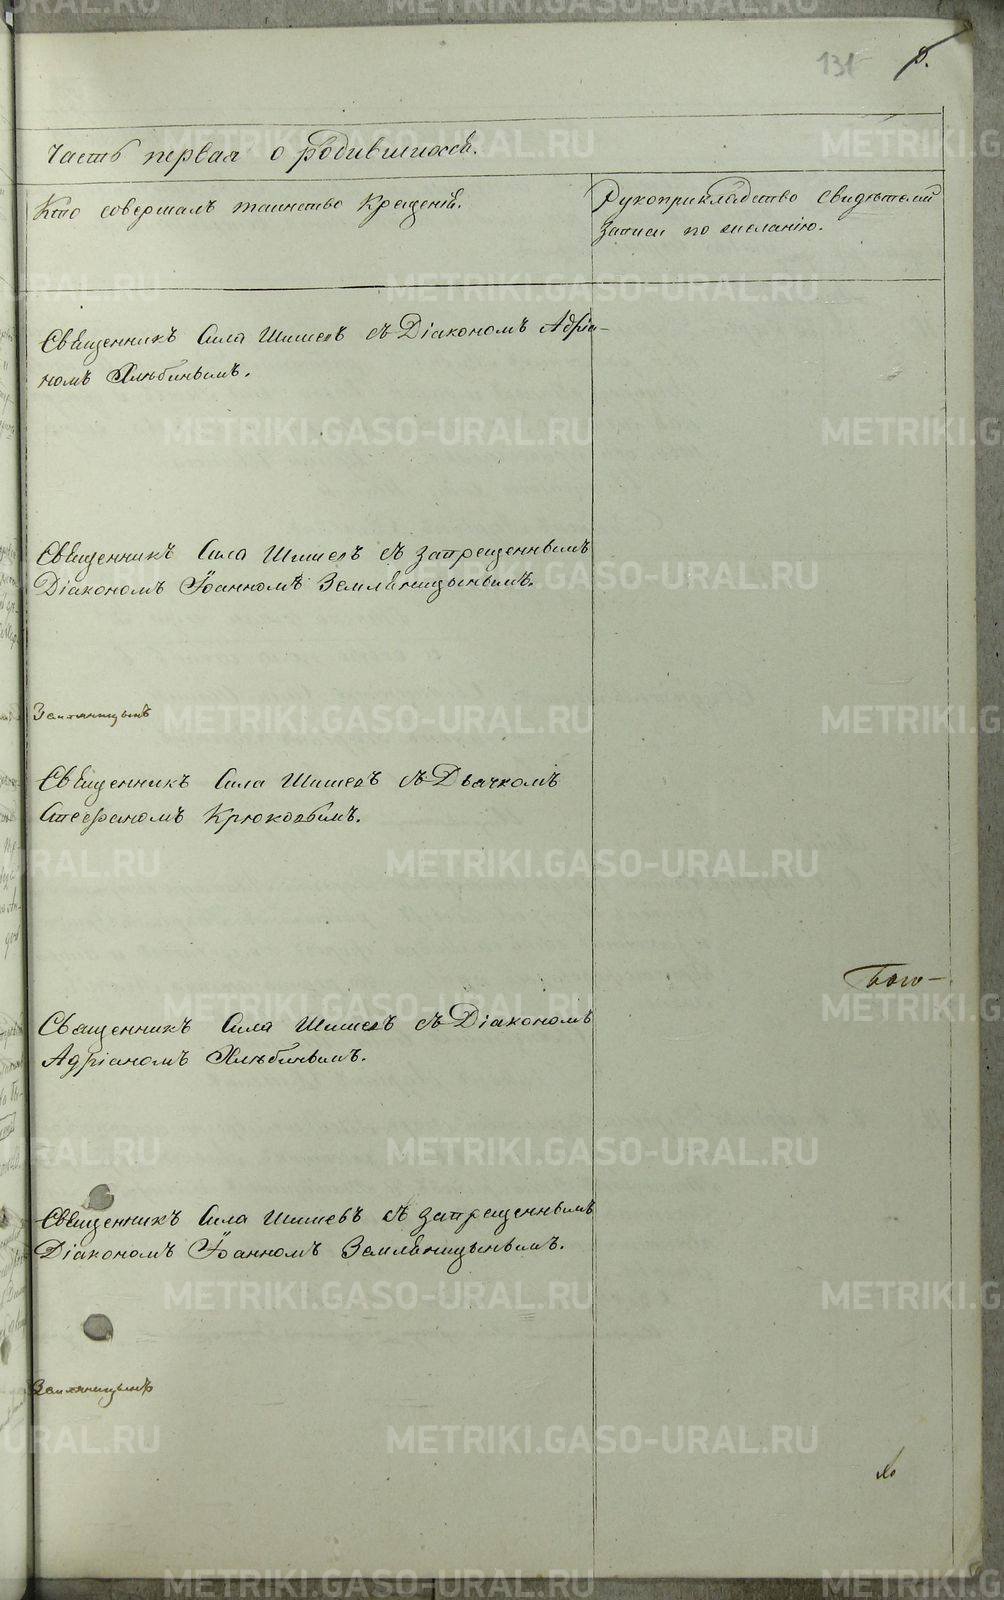 131
Часть первая о родившихся.
Кто совершалъ таинство Крещенія.
Рукоприкладство Свидѣтелей
записи по желанію.
Священникъ Сила Шишевъ съ Діакономъ Адріа-
номъ Хлѣбинымъ.
Священникъ Сила Шишевъ съ запрещеннымъ
Діакономъ Іоанномъ Земляницынымъ.
Земляницынъ
Священникъ Сила Шишевъ съ Дьячкомъ
Стефаномъ Крюковымъ.
Бого-
Священникъ Сила Шишевъ съ Діакономъ
Адріаномъ Хлѣбинымъ.
Священникъ Сила Шишевъ съ запрещеннымъ
Діакономъ Іоанномъ Земляницынымъ.
Земляницынъ
METRIKI.GASO-URAL.RU